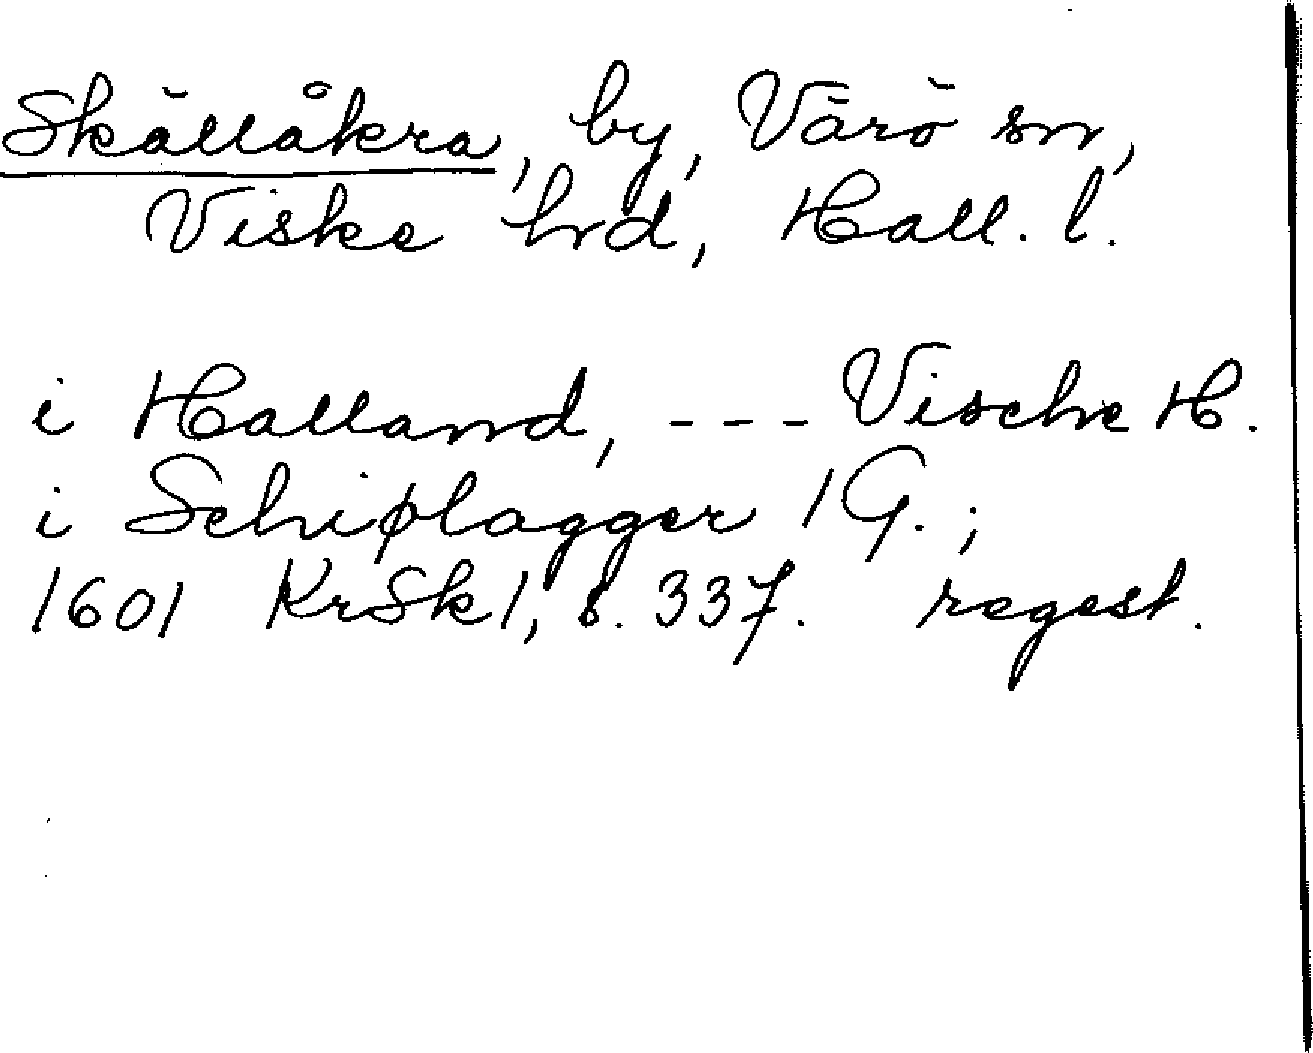 Skällåkra, by, Värö sn,
Viske hrd, Hall. l.
i Halland, --- Vische H.
i Schiplagger 1 G. ;
1601 KrSk 1, s. 337. regest.